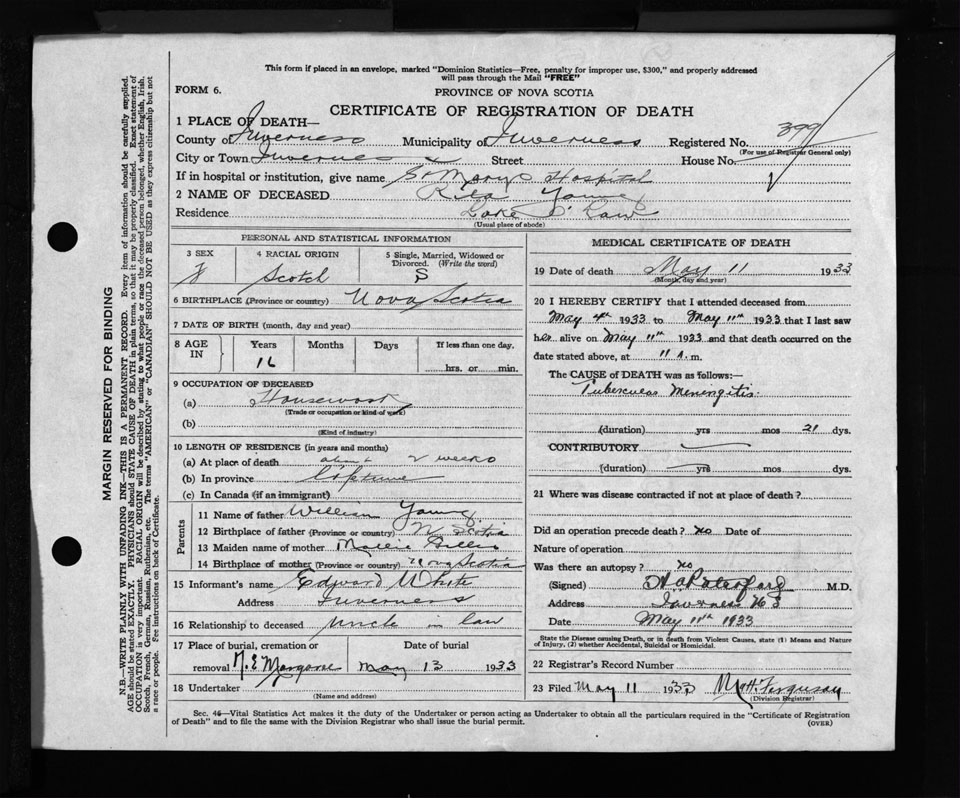 This form if placed in an envelope, marked "Dominion Statistics—Free, penalty for improper use, $300," and properly addressed
will pass through the Mail "FREE"
FORM 6.
PROVINCE OF NOVA SCOTIA
CERTIFICATE OF REGISTRATION OF DEATH
1 PLACE OF DEATH—
County of Inverness Municipality of Inverness Registered No. 399
(For use of Registrar General only)
City or Town Inverness Street House No.
If in hospital or institution, give name St Marys Hospital
2 NAME OF DECEASED Rita Young
Residence Lake O' Law
(Usual place of abode)
PERSONAL AND STATISTICAL INFORMATION
3 SEX 4 RACIAL ORIGIN 5 Single, Married, Widowed or Divorced. (Write the word)
F Scotch S
6 BIRTHPLACE (Province or country) Nova Scotia
7 DATE OF BIRTH (month, day and year)
8 AGE IN Years Months Days If less than one day,
16 hrs. or min.
9 OCCUPATION OF DECEASED
(a) Housework
(Trade or occupation or kind of work)
(b)
(Kind of industry)
10 LENGTH OF RESIDENCE (in years and months)
(a) At place of death about 2 weeks
(b) In province lifetime
(c) In Canada (if an immigrant)
Parents
11 Name of father William Young
12 Birthplace of father (Province or country) N Scotia
13 Maiden name of mother Gillis
14 Birthplace of mother (Province or country) Nova Scotia
15 Informant's name Edward White
Address Inverness
16 Relationship to deceased Uncle in law
17 Place of burial, cremation or removal Date of burial
N.E Margaree May 13 1933
18 Undertaker
(Name and address)
MEDICAL CERTIFICATE OF DEATH
19 Date of death May 11 1933
(Month, day and year)
20 I HEREBY CERTIFY that I attended deceased from
May 4th 1933 to May 11th 1933 that I last saw
her alive on May 11th 1933 and that death occurred on the
date stated above, at 11 A.m.
The CAUSE of DEATH was as follows:—
Tubercular Meningitis
(duration) yrs mos 21 dys.
CONTRIBUTORY
(duration) yrs mos dys.
21 Where was disease contracted if not at place of death?
Did an operation precede death? no Date of
Nature of operation
Was there an autopsy? no
(Signed) M.D.
Address Inverness N S
Date May 11th 1933
State the Disease causing Death, or in death from Violent Causes, state (1) Means and Nature
of Injury, (2) whether Accidental, Suicidal or Homicidal.
22 Registrar's Record Number
23 Filed May 11 1933 Ferguson
(Division Registrar)
Sec. 46—Vital Statistics Act makes it the duty of the Undertaker or person acting as Undertaker to obtain all the particulars required in the "Certificate of Registration
of Death" and to file the same with the Division Registrar who shall issue the burial permit.
(OVER)
MARGIN RESERVED FOR BINDING
N.B.—WRITE PLAINLY WITH UNFADING INK—THIS IS A PERMANENT RECORD. Every item of information should be carefully supplied.
AGE should be stated EXACTLY. PHYSICIANS should STATE CAUSE OF DEATH in plain terms, so that it may be properly classified. Exact statement of
OCCUPATION is very important. RACIAL ORIGIN will be described by stating to what people or race the deceased person belonged, whether English, Irish,
Scotch, French, German, Russian, Ruthenian, etc. The terms "AMERICAN" or "CANADIAN" SHOULD NOT BE USED as they express citizenship but not
a race or people. See instructions on back of Certificate.